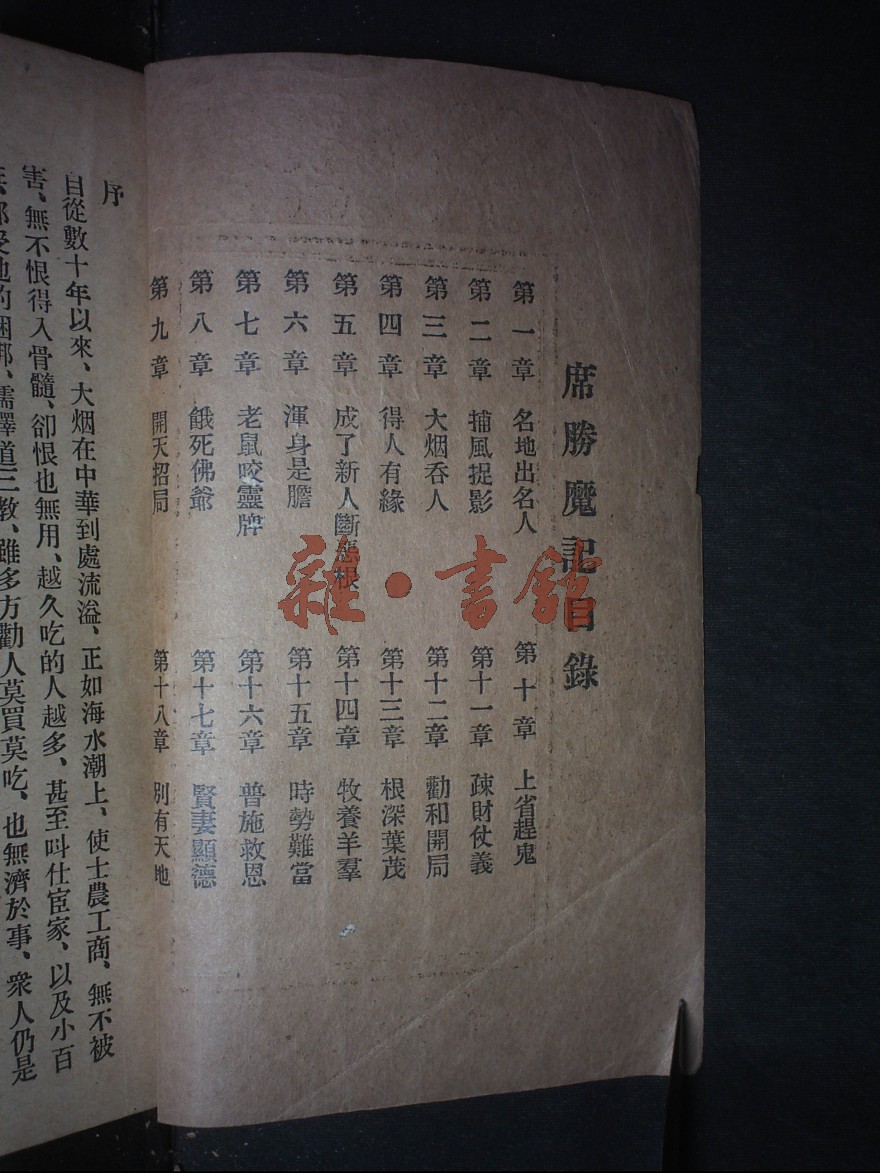 席勝魔記目錄
第一章 名地出名人
第二章 捕風捉影
第三章 大烟吞人
第四章 得人有緣
第五章 成了新人斷舊根
第六章 渾身是膽
第七章 老鼠咬靈牌
第八章 餓死佛爺
第九章 開天招局
第十章 上省趕鬼
第十一章 疎財仗義
第十二章 勸和開局
第十三章 根深葉茂
第十四章 牧養羊羣
第十五章 時勢難當
第十六章 普施救恩
第十七章 賢妻顯德
第十八章 別有天地
雜·書館
序
自從數十年以來、大烟在中華到處流溢、正如海水潮上、使士農工商、無不被
害、無不恨得入骨髓、卻恨也無用、越久吃的人越多、甚至呌仕宦家、以及小百
教、雖多方勸人莫買莫吃、也無濟於事、衆人仍是